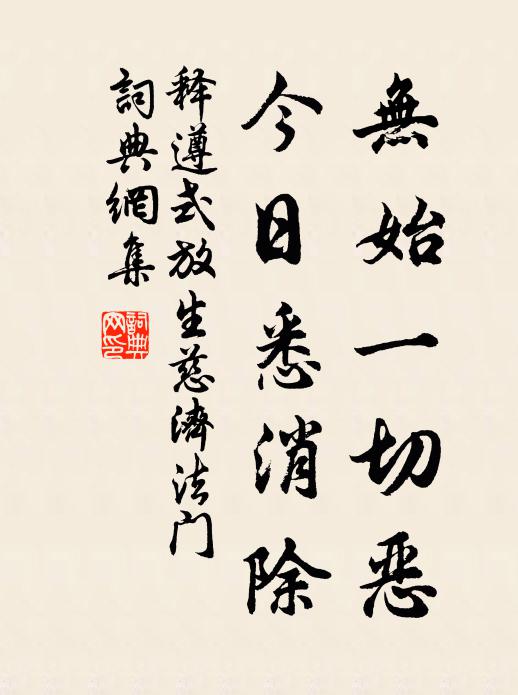 無始一切惡
今日悉消除
释遵式放生慈濟法门
詞典網集
詞典网印